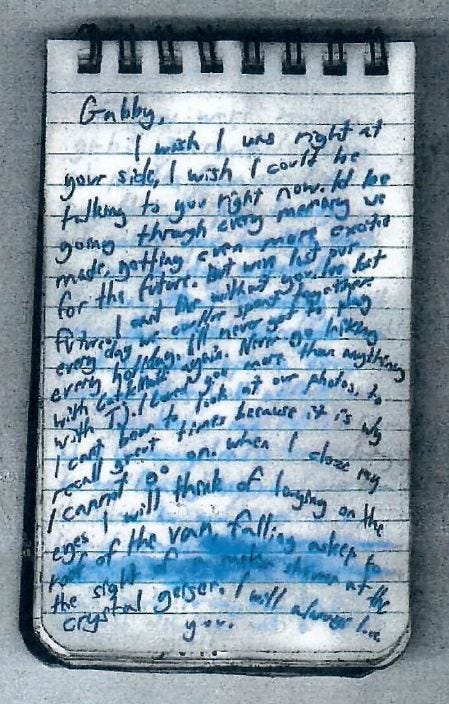 Gabby,
I wish I was right at
your side, I wish I could be
talking to you right now. Id be
going through every memory we
made, getting even more excited
for the future. But we've lost our
future. I cant live without you. Ive lost
every day we could've spent together,
every holiday. I'll never get to play
with again. Never go hiking
with TJ. I loved you more than anything
I cant bear to look at our photos, to
recall great times because it is why
I cannot go on. when I close my
eyes I will think of laughing on the
roof of the van, falling asleep to
the sight of a meteor shower at the
crystal geiser. I will always love
you.